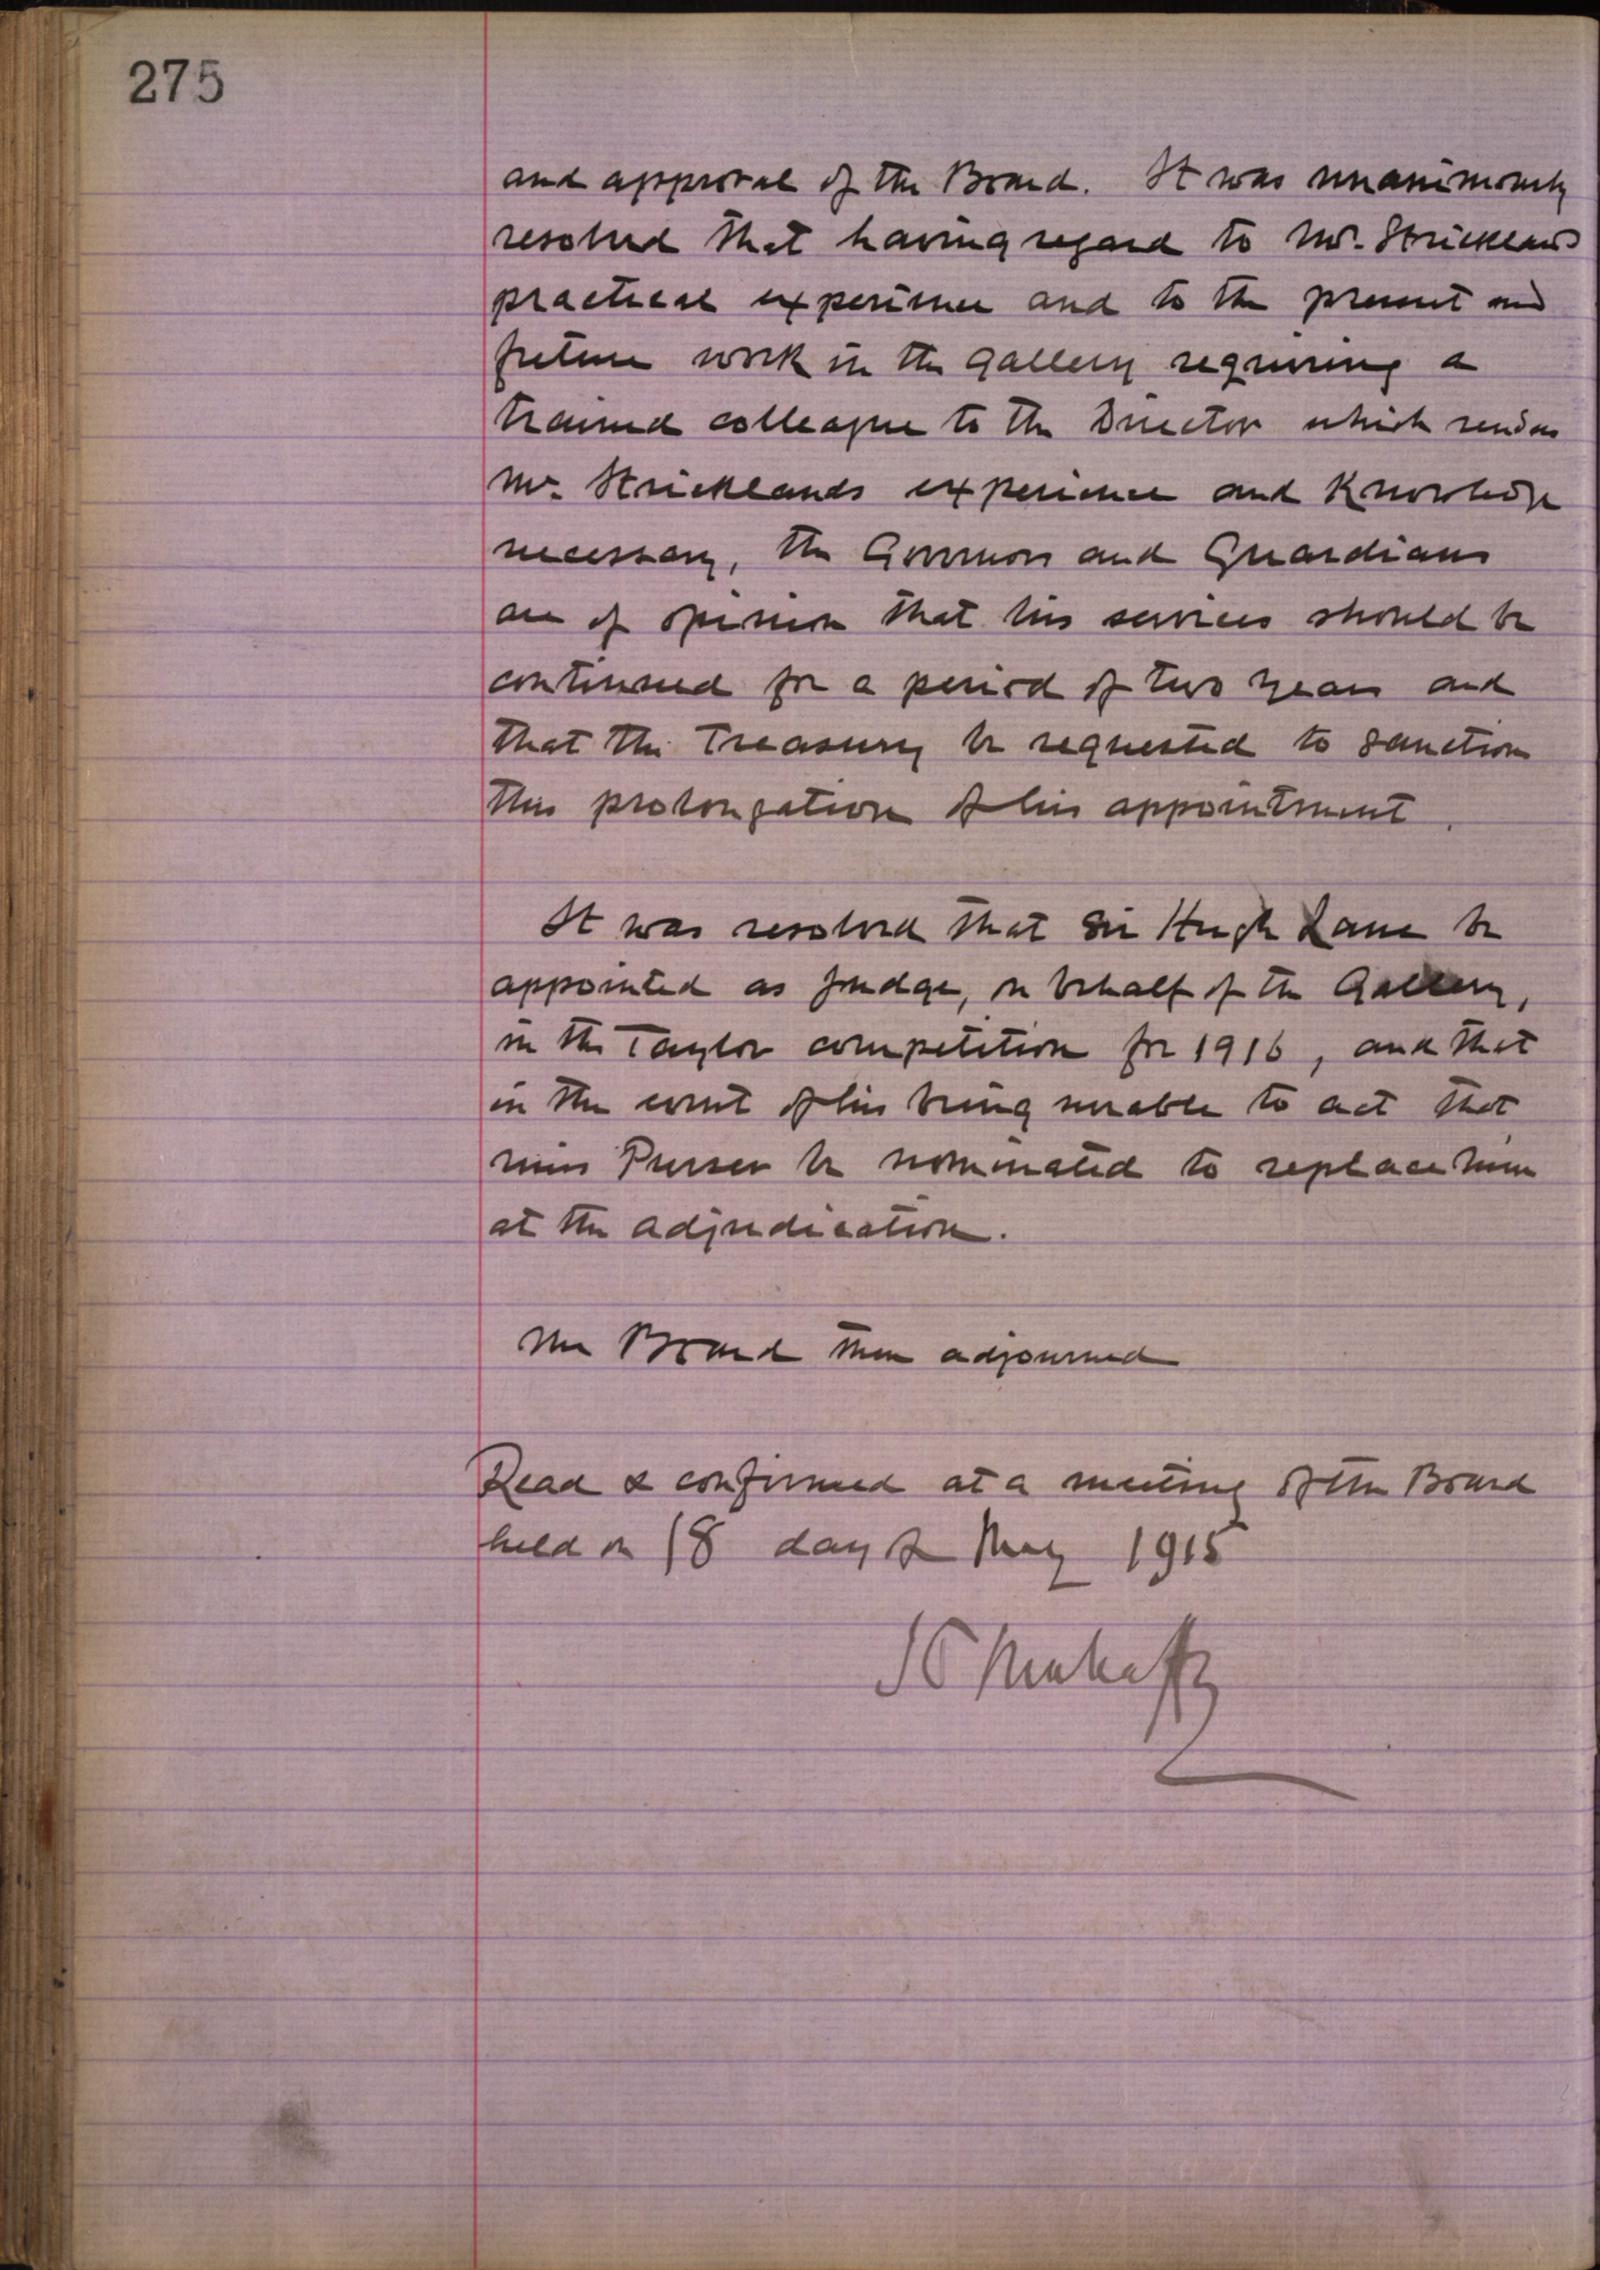 275
and approval of the Board. It was unanimously
resolved that having regard to Mr. Stricklands
practical experience and to the present and
future work in the Gallery requiring a
trained colleague to the Director which renders
Mr. Stricklands experience and Knowledge
necessary, the Governors and Guardians
are of opinion that his services should be
continued for a period of two years and
that the Treasury be requested to sanction
this prolongation of his appointment.
It was resolved that Sir Hugh Lane be
appointed as judge, on behalf of the Gallery,
in the Taylor competition for 1916, and that
in the event of his being unable to act that
Miss Purser be nominated to replace him
at the adjudication.
The Board then adjourned
Read & confirmed at a meeting of the Board
held on 18 day of May 1915
J P Mahaffy